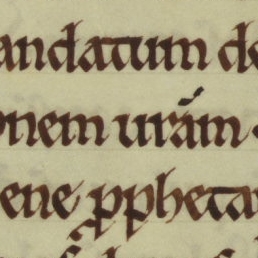 andatum de
onem uram
ene ppheta